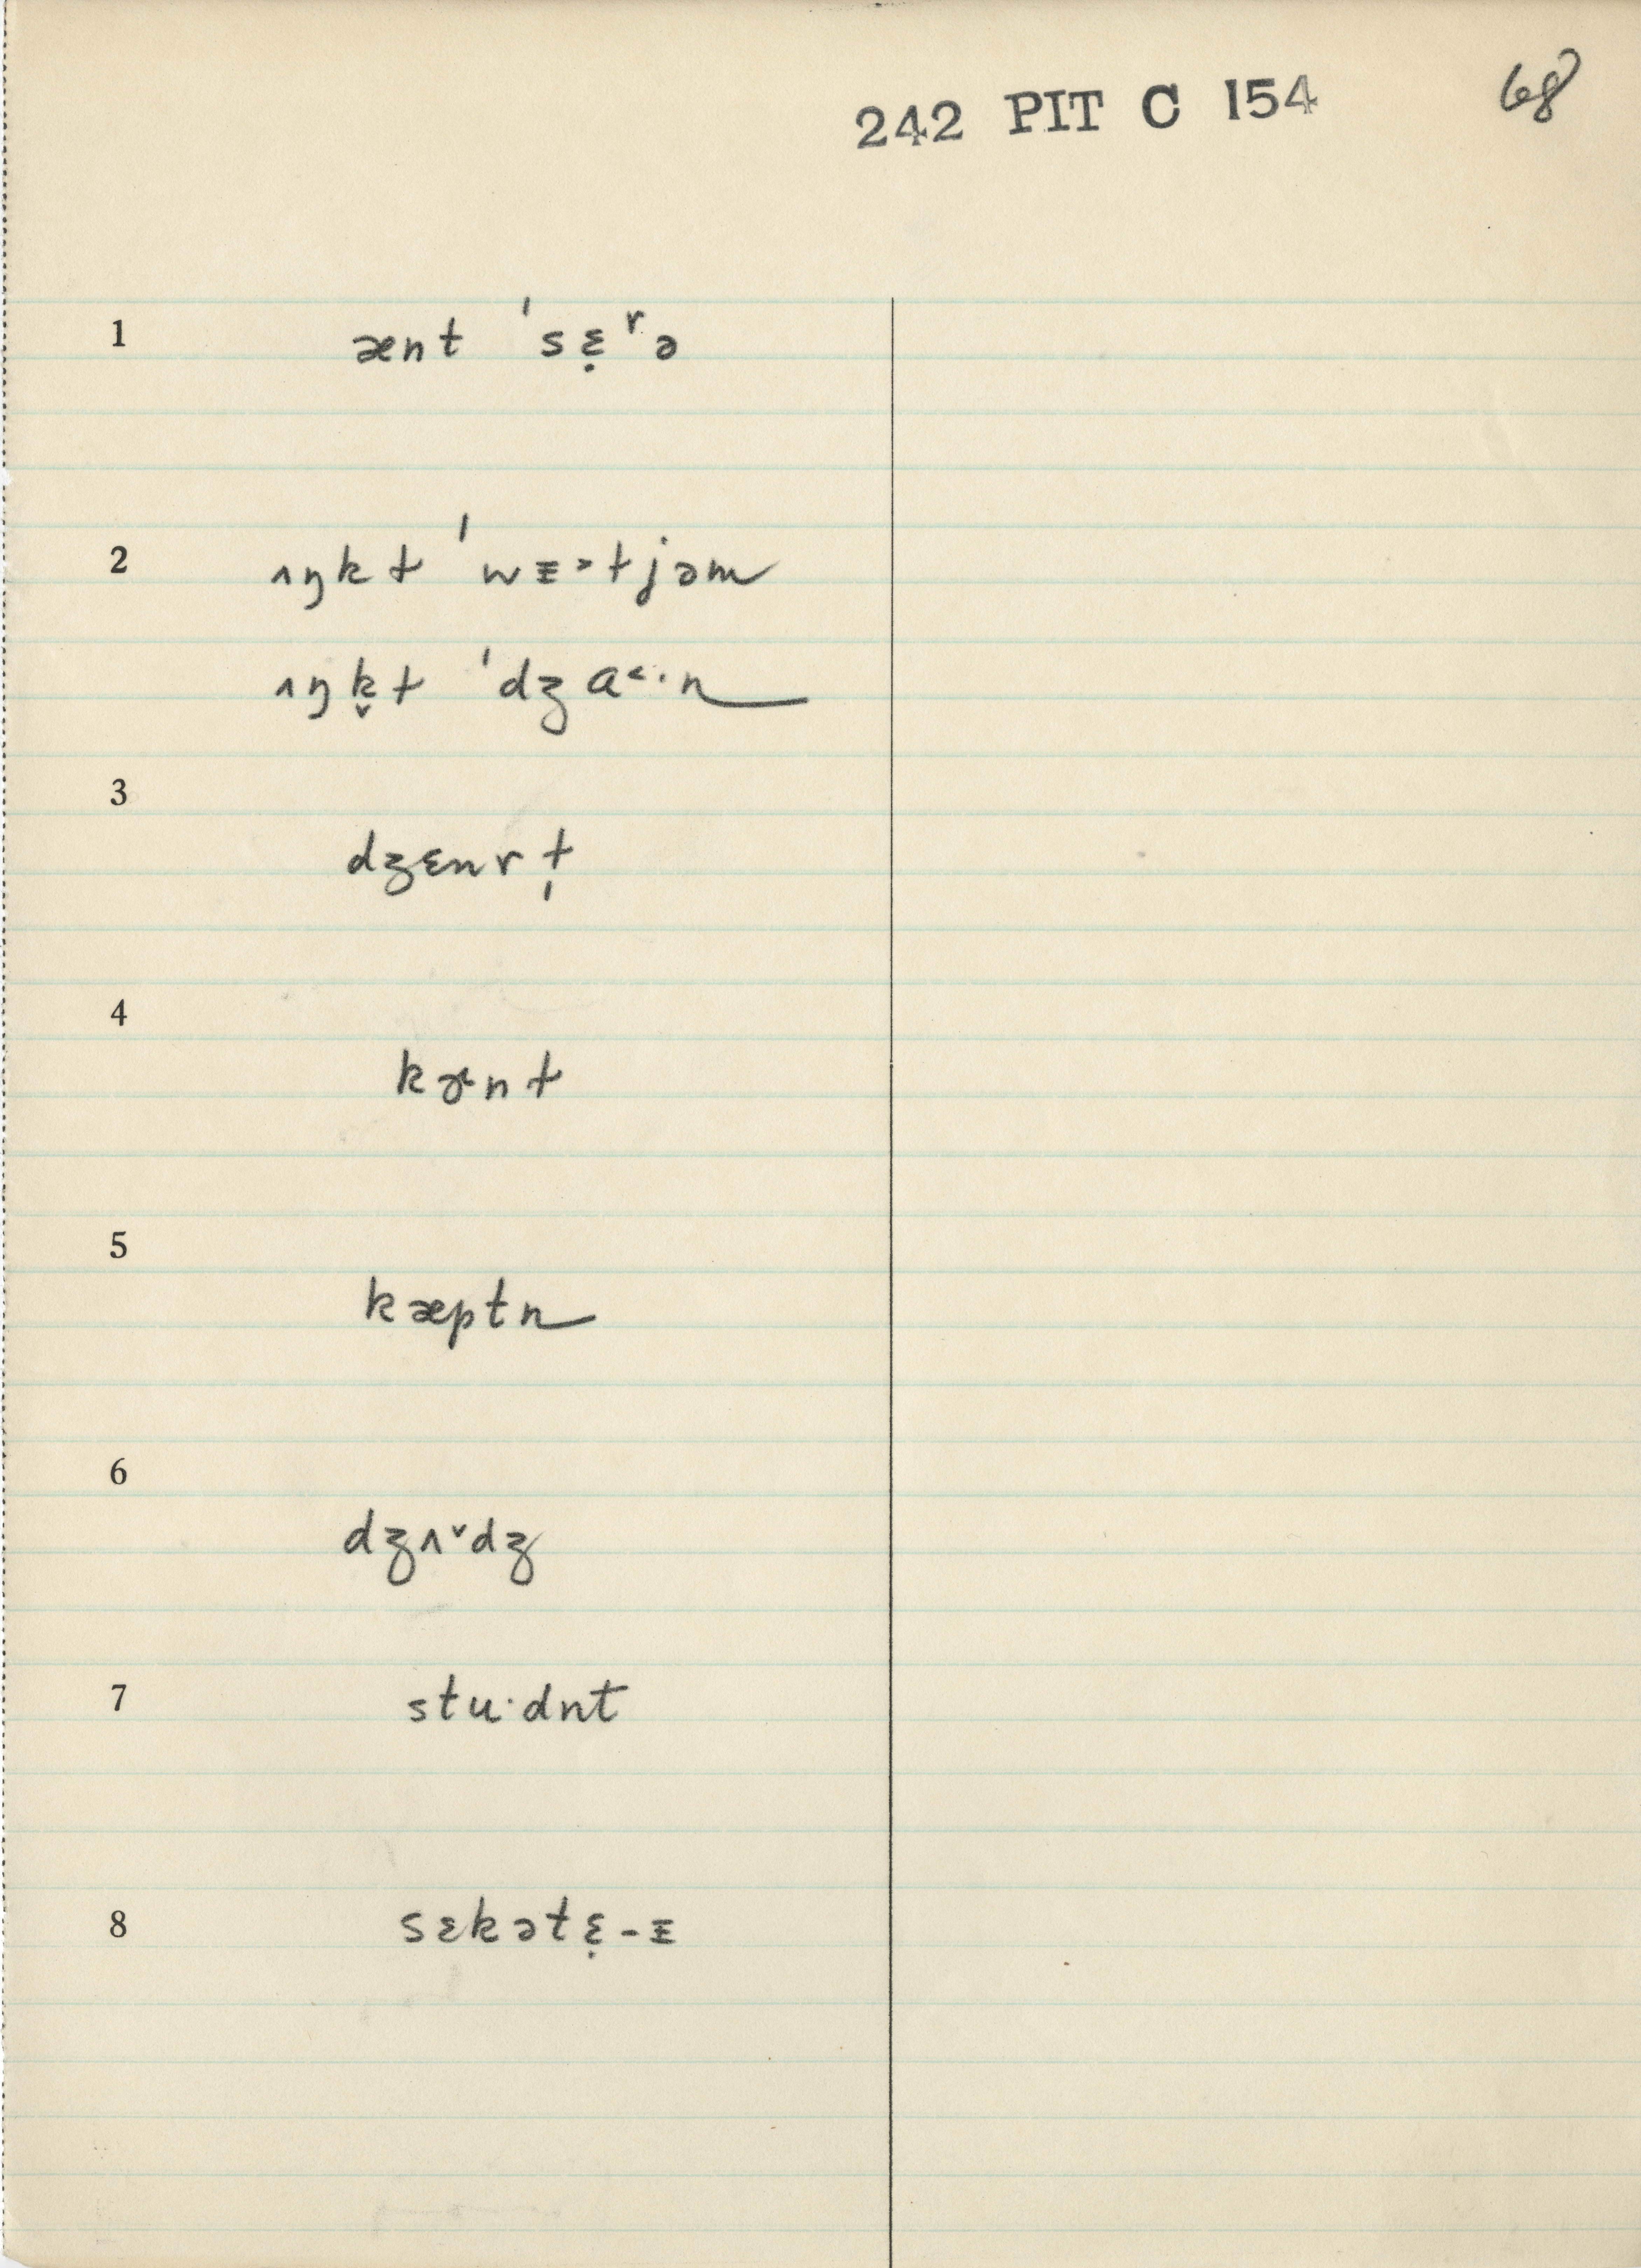 242 PIT C 154 68
1 ænt ˈsɛ̣ʳə
2 ʌŋkɫ ˈwɪ˃ɫjəm
ʌŋk̬ɫ ˈdʒɑ˂·n
3 dʒɛnrɫ̩
4 kɚnɫ
5 kæptn
6 dʒʌˇdʒ
7 stu·dnt
8 sɛkətɛ̣-ɪ